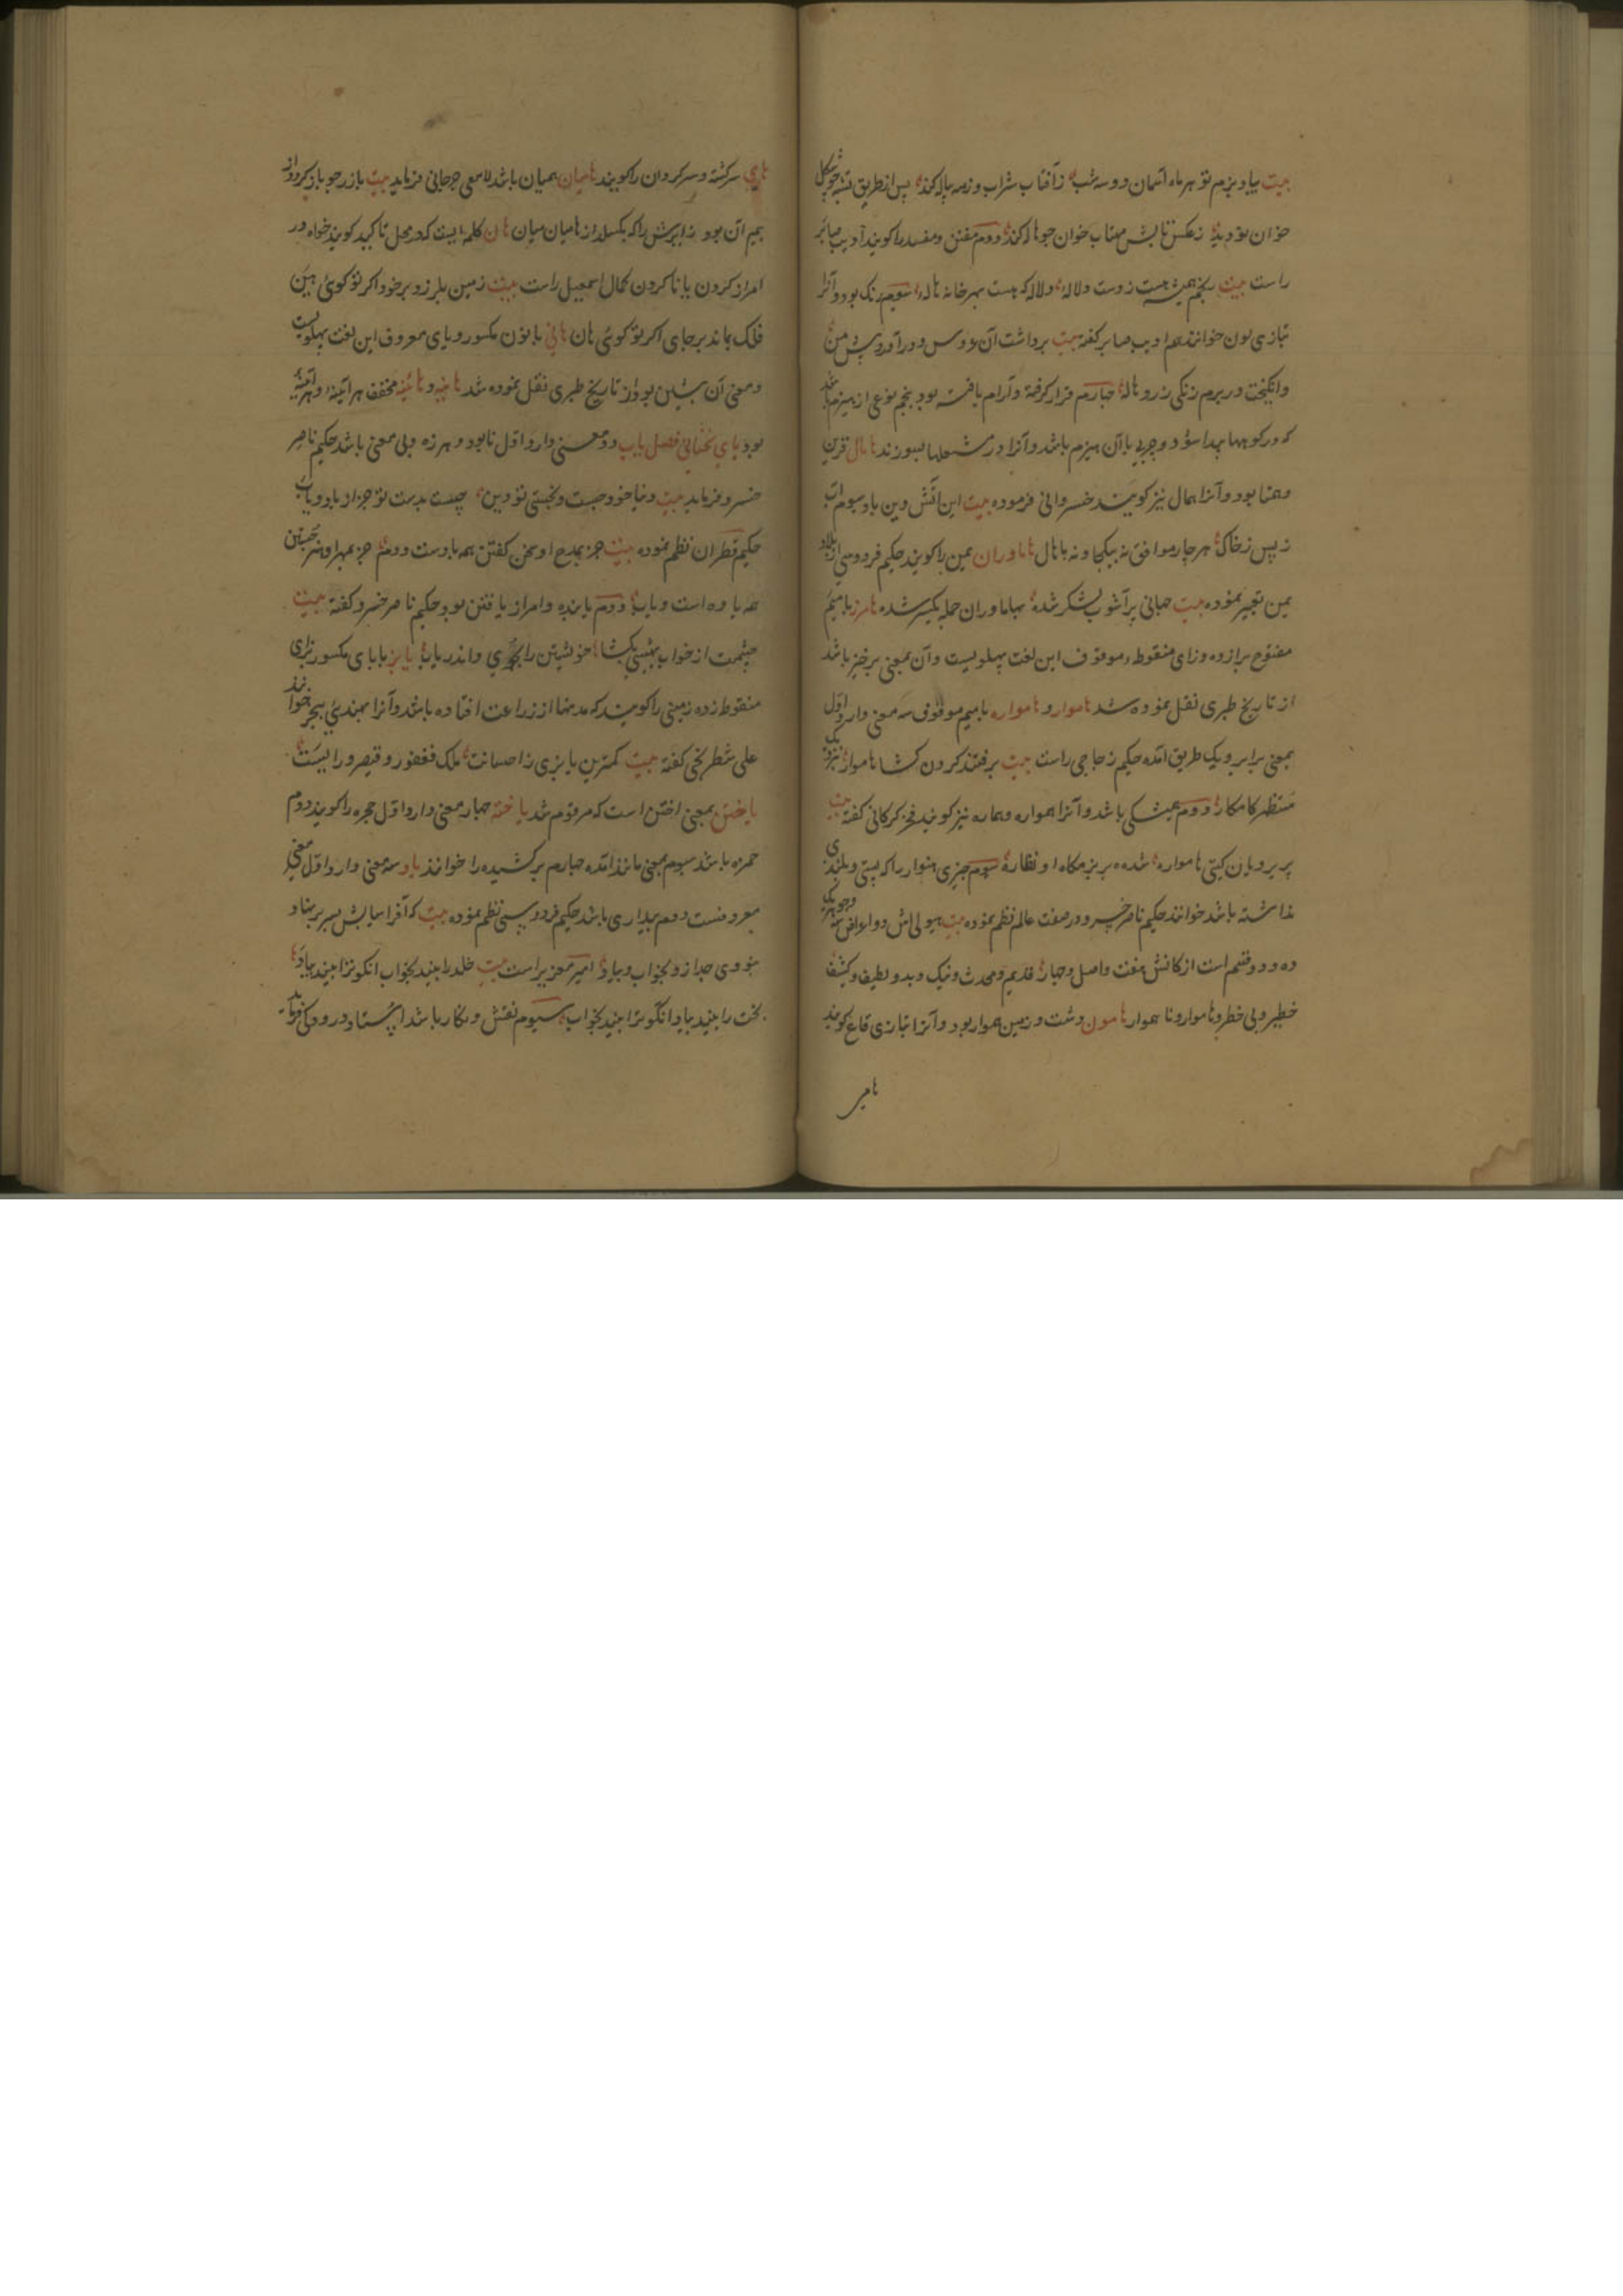 بیت بیاد بزم تو هر ماه آسمان دو سه شب ز آفتاب شراب و زمه پیاله کند پس از طریق تشبه چو شکل
خوان تو دید ز عکس تابش مهتاب خوان چو هاله کند دوم مفتن و مفسد را کویند ادیب صابر
راست بیت رنجم همیشه هست ز دوست و لاله و لاله که هست بهر خانه هاله سوم رنک بود و آنرا
بتازی لون خوانند هم ادیب صابر کفته بیت برداشت آن عروس و در آورد پیش من
وانکیخت در برم زنکی زرد هاله چهارم قرار کرفته و آرام یافته بود پنجم نوعی از هیزم باشد
که در کوهها پیدا شود و چربی با آن هیزم باشد و آنرا در مشعلها بسوزند هامال قرین
و همتا بود و آنرا همال نیز کویند خسروانی فرموده بیت این آتش و این باد سیوم آب
ز پس ز خاک هر چار موافق نه بیکجا و نه با هال هاماوران یمن را کویند حکیم فردوسی از بلاد
یمن تعبیر نموده بیت جهانی پر آشوب لشکر شده بهاماوران جمله یکسر شده هامرز با میم
مفتوح برا زده و زای منقوطه موقوف این لغت پهلویست و آن بمعنی برخیز باشد
از تاریخ طبری نقل نموده شد هاموار و هامواره با میم موقوف سه معنی دارد اول
بمعنی برابر و یک طریق آمده حکیم زجاجی راست بیت برفتند کردن کشا هاموار بنزدیک
منتظر کامکار دوم همیشکی باشد و آنرا همواره و هماره نیز کویند فخر کرکانی کفته بیت
پریرویان کیتی هامواره شده بر بزمکاه او نظاره سوم چیزی هموار را که پستی و بلندی
نداشته باشد خوانند حکیم ناصر خسرو در صفت عالم نظم نموده بیت هیولی اش دو اعراض نه و جوهر یک
ده و دو قسم است ارکانش هفت و اصل و چار قدیم و محدث و نیک و بد و لطیف و کثیف
خطیر و بی خطر و هاموار و نا هموار هامون دشت و زمین هموار بود و آنرا بتازی قاع کویند
هامی
هامی سرکشته و سرکردان را کویند هامیان همیان باشد لامعی جرجانی فرماید بیت باز رجو باز کردد از
بیم آن بود زابرش را که بکسلد از هامیان میان هان کلمه ایست که در محل تاکید کویند خواه در
امر از کردن یا ناکردن کمال اسمعیل راست بیت زمین بلرزد بر خود اکر تو کوئی هین
فلک بماند بر جای اکر تو کوئی هان هانی با نون مکسور و یای معروف این لغت پهلویست
و معنی آن بشین بود از تاریخ طبری نقل نموده شد هاینه و هائینه مخفف هر آئینه و هر آینه
بود یای تحتانی فصل یاب دو معنی دارد اول نابود و هرزه و بی معنی باشد حکیم ناصر
خسرو فرماید بیت دنیا خود جست و نجستی تو دین چیست بدست تو جز از باد و یاب
حکیم قطران نظم نموده بیت جز بمدح او سخن کفتن همه بادست و دم جز بمهر او هنر جستن
همه یاوه است و یاب دوم یابنده و امر از یافتن بود حکیم ناصر خسرو کفته بیت
چشمت از خواب بهشتی بکشا خویشتن را بجوی و اندر یاب یابز با بای مکسور بزای
منقوطه زده زمینی را کویند که مدتها از زراعت افتاده باشد و آنرا بهندی بنجر خوانند
علی شطرنجی کفته بیت کمترین یابزی ز احسانت ملک فغفور و قیصر و رایست
یاختن بمعنی اختن است که مرقوم شد یاخته چهار معنی دارد اول حجره را کویند دوم
خمره باشد سیوم بمعنی مانند آمده چهارم بر کشیده را خوانند یاد سه معنی دارد اول معنی
معروفست دوم بیداری باشد حکیم فردوسی نظم نموده بیت که آفرا سیابش بسر بر نهاد
نبودی جدا زو بخواب و بیاد امیر معزی راست بیت خلد را بیند بخواب انکو ترا بیند بیاد
بخت را بیند بیاد انکو ترا بیند بخواب سیوم نقش و نکار باشد استاد رودکی فرماید